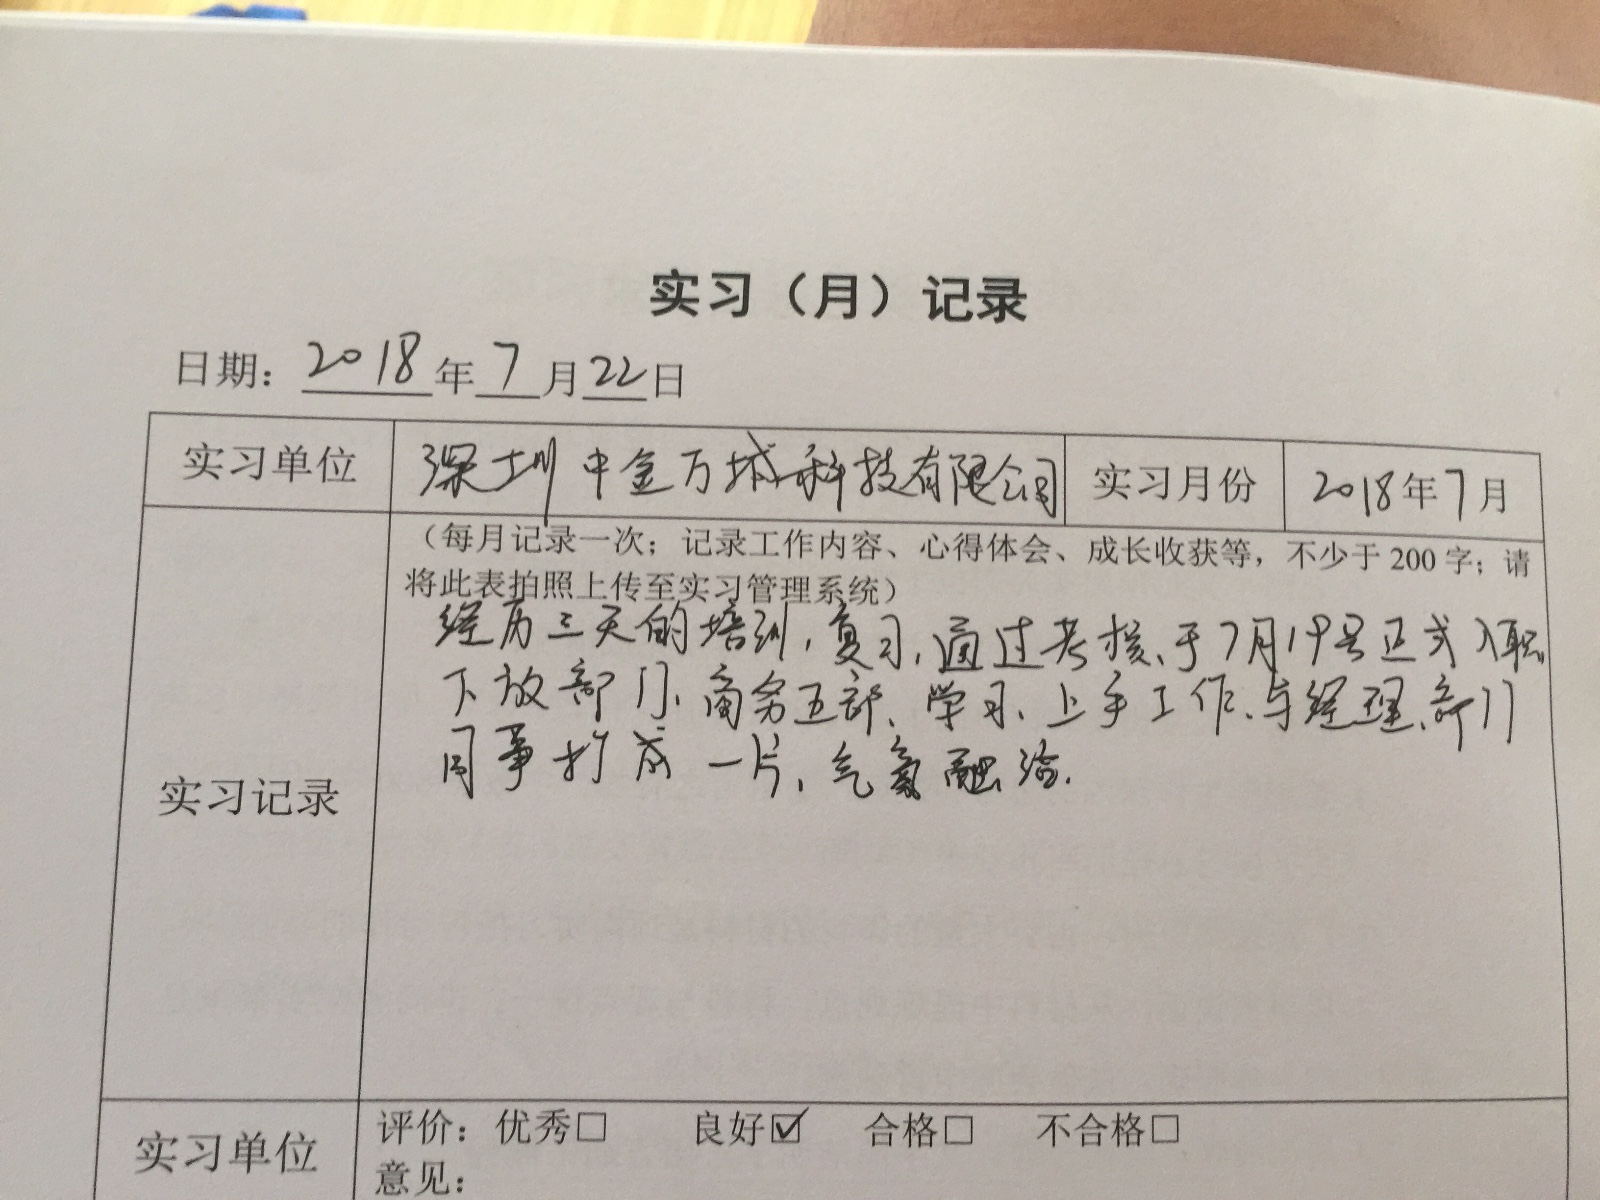 实习（月）记录
日期：2018年7月22日
实习单位 深圳中金万城科技有限公司 实习月份 2018年7月
（每月记录一次；记录工作内容、心得体会、成长收获等，不少于200字；请
将此表拍照上传至实习管理系统）
实习记录
经历三天的培训，复习，通过考核，于7月19号正式入职
下放部门，商务五部，学习，上手工作，与经理，部门
同事打成一片，气氛融洽.
实习单位
评价：优秀□ 良好☑ 合格□ 不合格□
意见：